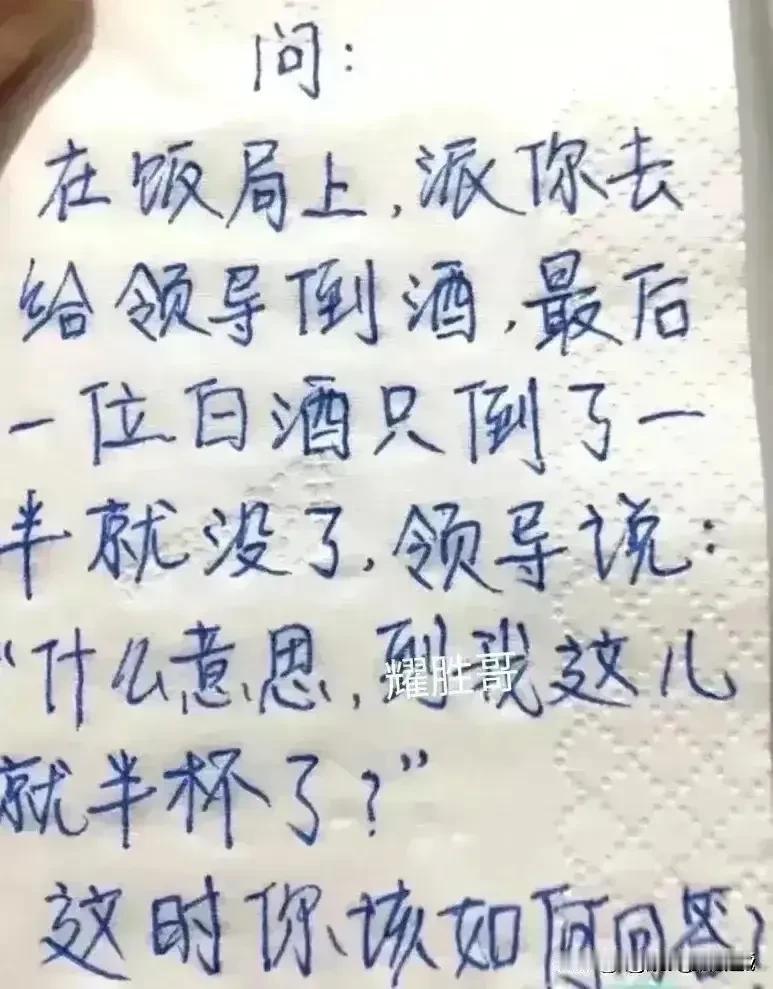 问:
在饭局上,派你去
给领导倒酒,最后
一位白酒只倒了一
半就没了,领导说:
“什么意思,到我这儿
耀胜哥
就半杯了?”
这时你该如何回答?